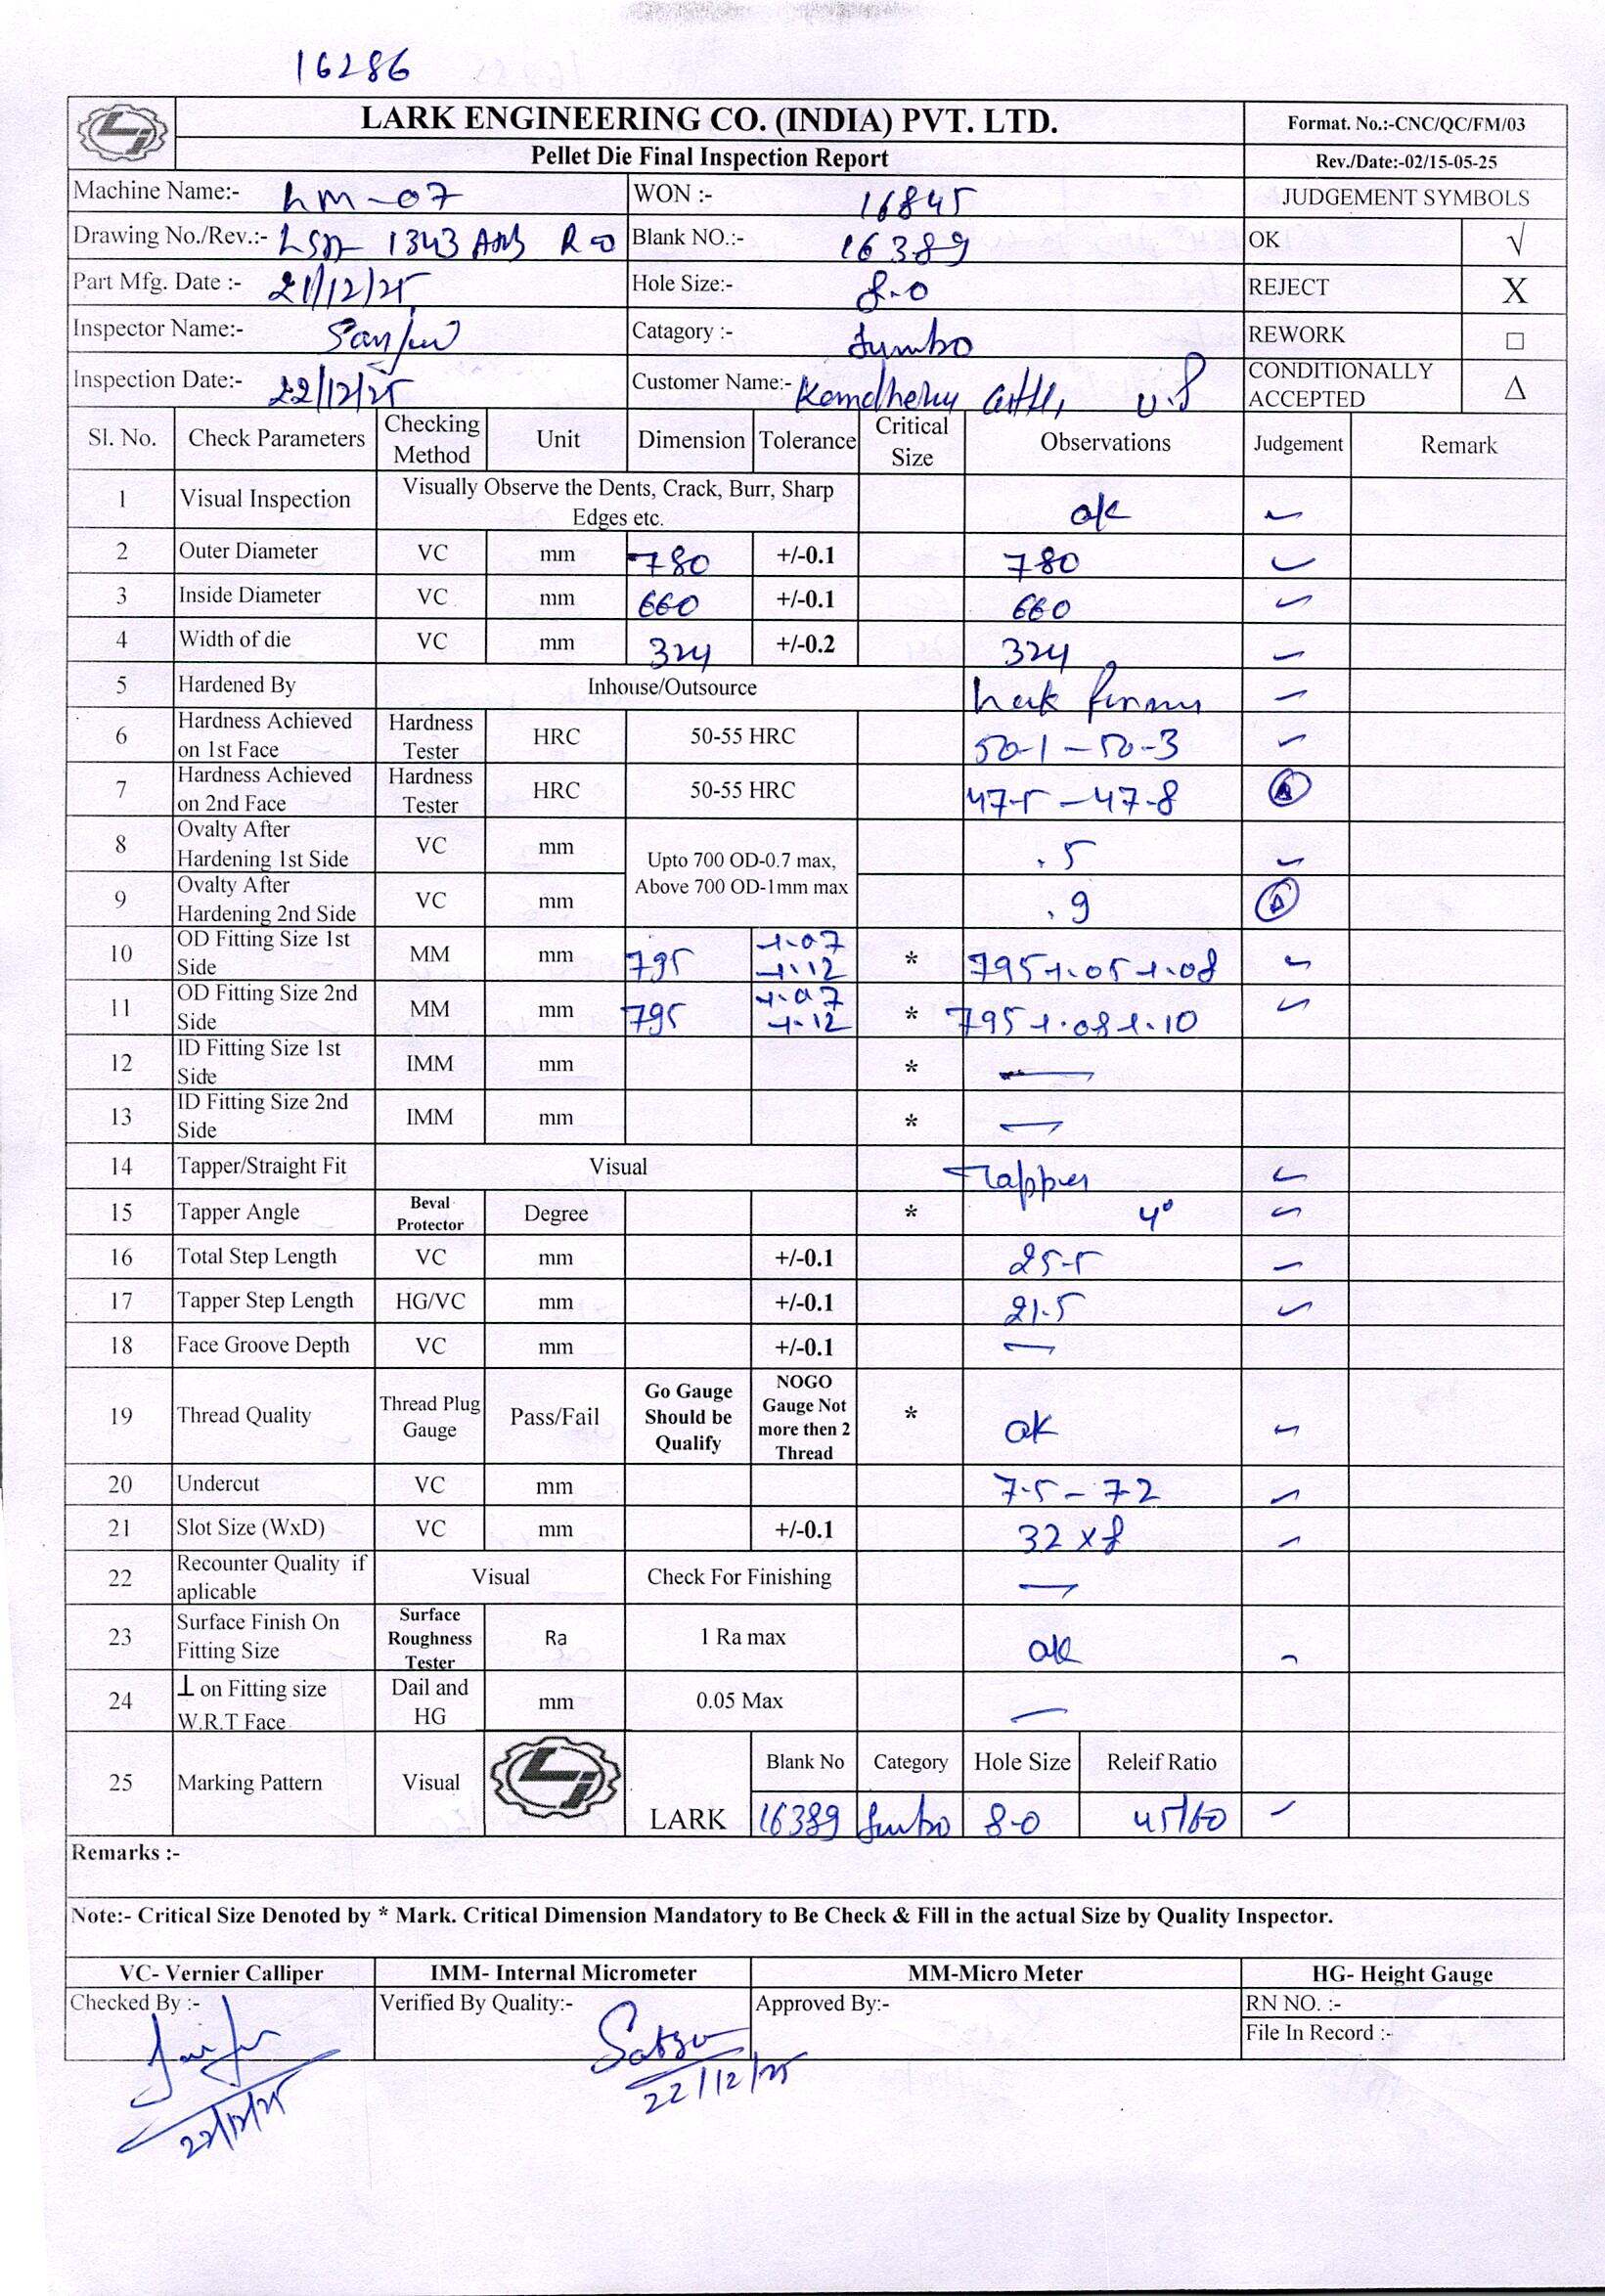 16286
LARK ENGINEERING CO. (INDIA) PVT. LTD.
Format. No.:-CNC/QC/FM/03
Pellet Die Final Inspection Report
Rev./Date:-02/15-05-25
Machine Name:- LM-07 WON :- 16845 JUDGEMENT SYMBOLS
Drawing No./Rev.:- 1343 R-0 Blank NO.:- 16389 OK √
Part Mfg. Date :- 21/12/25 Hole Size:- 8-0 REJECT X
Inspector Name:- Catagory :- Jumbo REWORK □
Inspection Date:- 22/12/25 Customer Name:- CONDITIONALLY ACCEPTED Δ
Sl. No. Check Parameters Checking Method Unit Dimension Tolerance Critical Size Observations Judgement Remark
1 Visual Inspection Visually Observe the Dents, Crack, Burr, Sharp Edges etc. ok ✓
2 Outer Diameter VC mm 780 +/-0.1 780 ✓
3 Inside Diameter VC mm 660 +/-0.1 660 ✓
4 Width of die VC mm 324 +/-0.2 324 ✓
5 Hardened By Inhouse/Outsource ✓
6 Hardness Achieved on 1st Face Hardness Tester HRC 50-55 HRC 50-1 – 50-3 ✓
7 Hardness Achieved on 2nd Face Hardness Tester HRC 50-55 HRC 47-5 – 47-8 Δ
8 Ovalty After Hardening 1st Side VC mm Upto 700 OD-0.7 max, Above 700 OD-1mm max .5 ✓
9 Ovalty After Hardening 2nd Side VC mm .9 Δ
10 OD Fitting Size 1st Side MM mm 795 +.07 +.12 * 795+.05+.08 ✓
11 OD Fitting Size 2nd Side MM mm 795 +.07 +.12 * 795+.08+.10 ✓
12 ID Fitting Size 1st Side IMM mm * —
13 ID Fitting Size 2nd Side IMM mm * —
14 Tapper/Straight Fit Visual Tapper ✓
15 Tapper Angle Beval Protector Degree * 4° ✓
16 Total Step Length VC mm +/-0.1 25-5 ✓
17 Tapper Step Length HG/VC mm +/-0.1 21.5 ✓
18 Face Groove Depth VC mm +/-0.1 —
19 Thread Quality Thread Plug Gauge Pass/Fail Go Gauge Should be Qualify NOGO Gauge Not more then 2 Thread * ok ✓
20 Undercut VC mm 7.5 – 7.2 ✓
21 Slot Size (WxD) VC mm +/-0.1 32 x 8 ✓
22 Recounter Quality if aplicable Visual Check For Finishing —
23 Surface Finish On Fitting Size Surface Roughness Tester Ra 1 Ra max ok ✓
24 ⊥ on Fitting size W.R.T Face Dail and HG mm 0.05 Max —
25 Marking Pattern Visual LARK Blank No Category Hole Size Releif Ratio
16389 Jumbo 8-0 45/60 ✓
Remarks :-
Note:- Critical Size Denoted by * Mark. Critical Dimension Mandatory to Be Check & Fill in the actual Size by Quality Inspector.
VC- Vernier Calliper IMM- Internal Micrometer MM-Micro Meter HG- Height Gauge
Checked By :- Verified By Quality:- Approved By:- RN NO. :-
File In Record :-
22/12/25 22/12/25